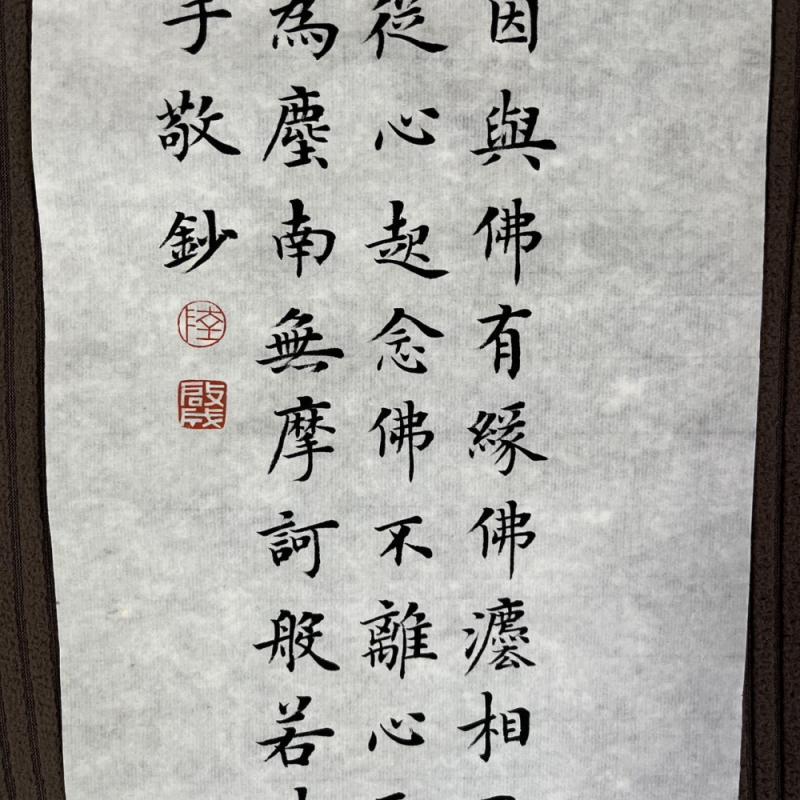 因與佛有緣佛灋相
從心起念佛不離心
為塵南無摩訶般若
手敬鈔
陸
啟成